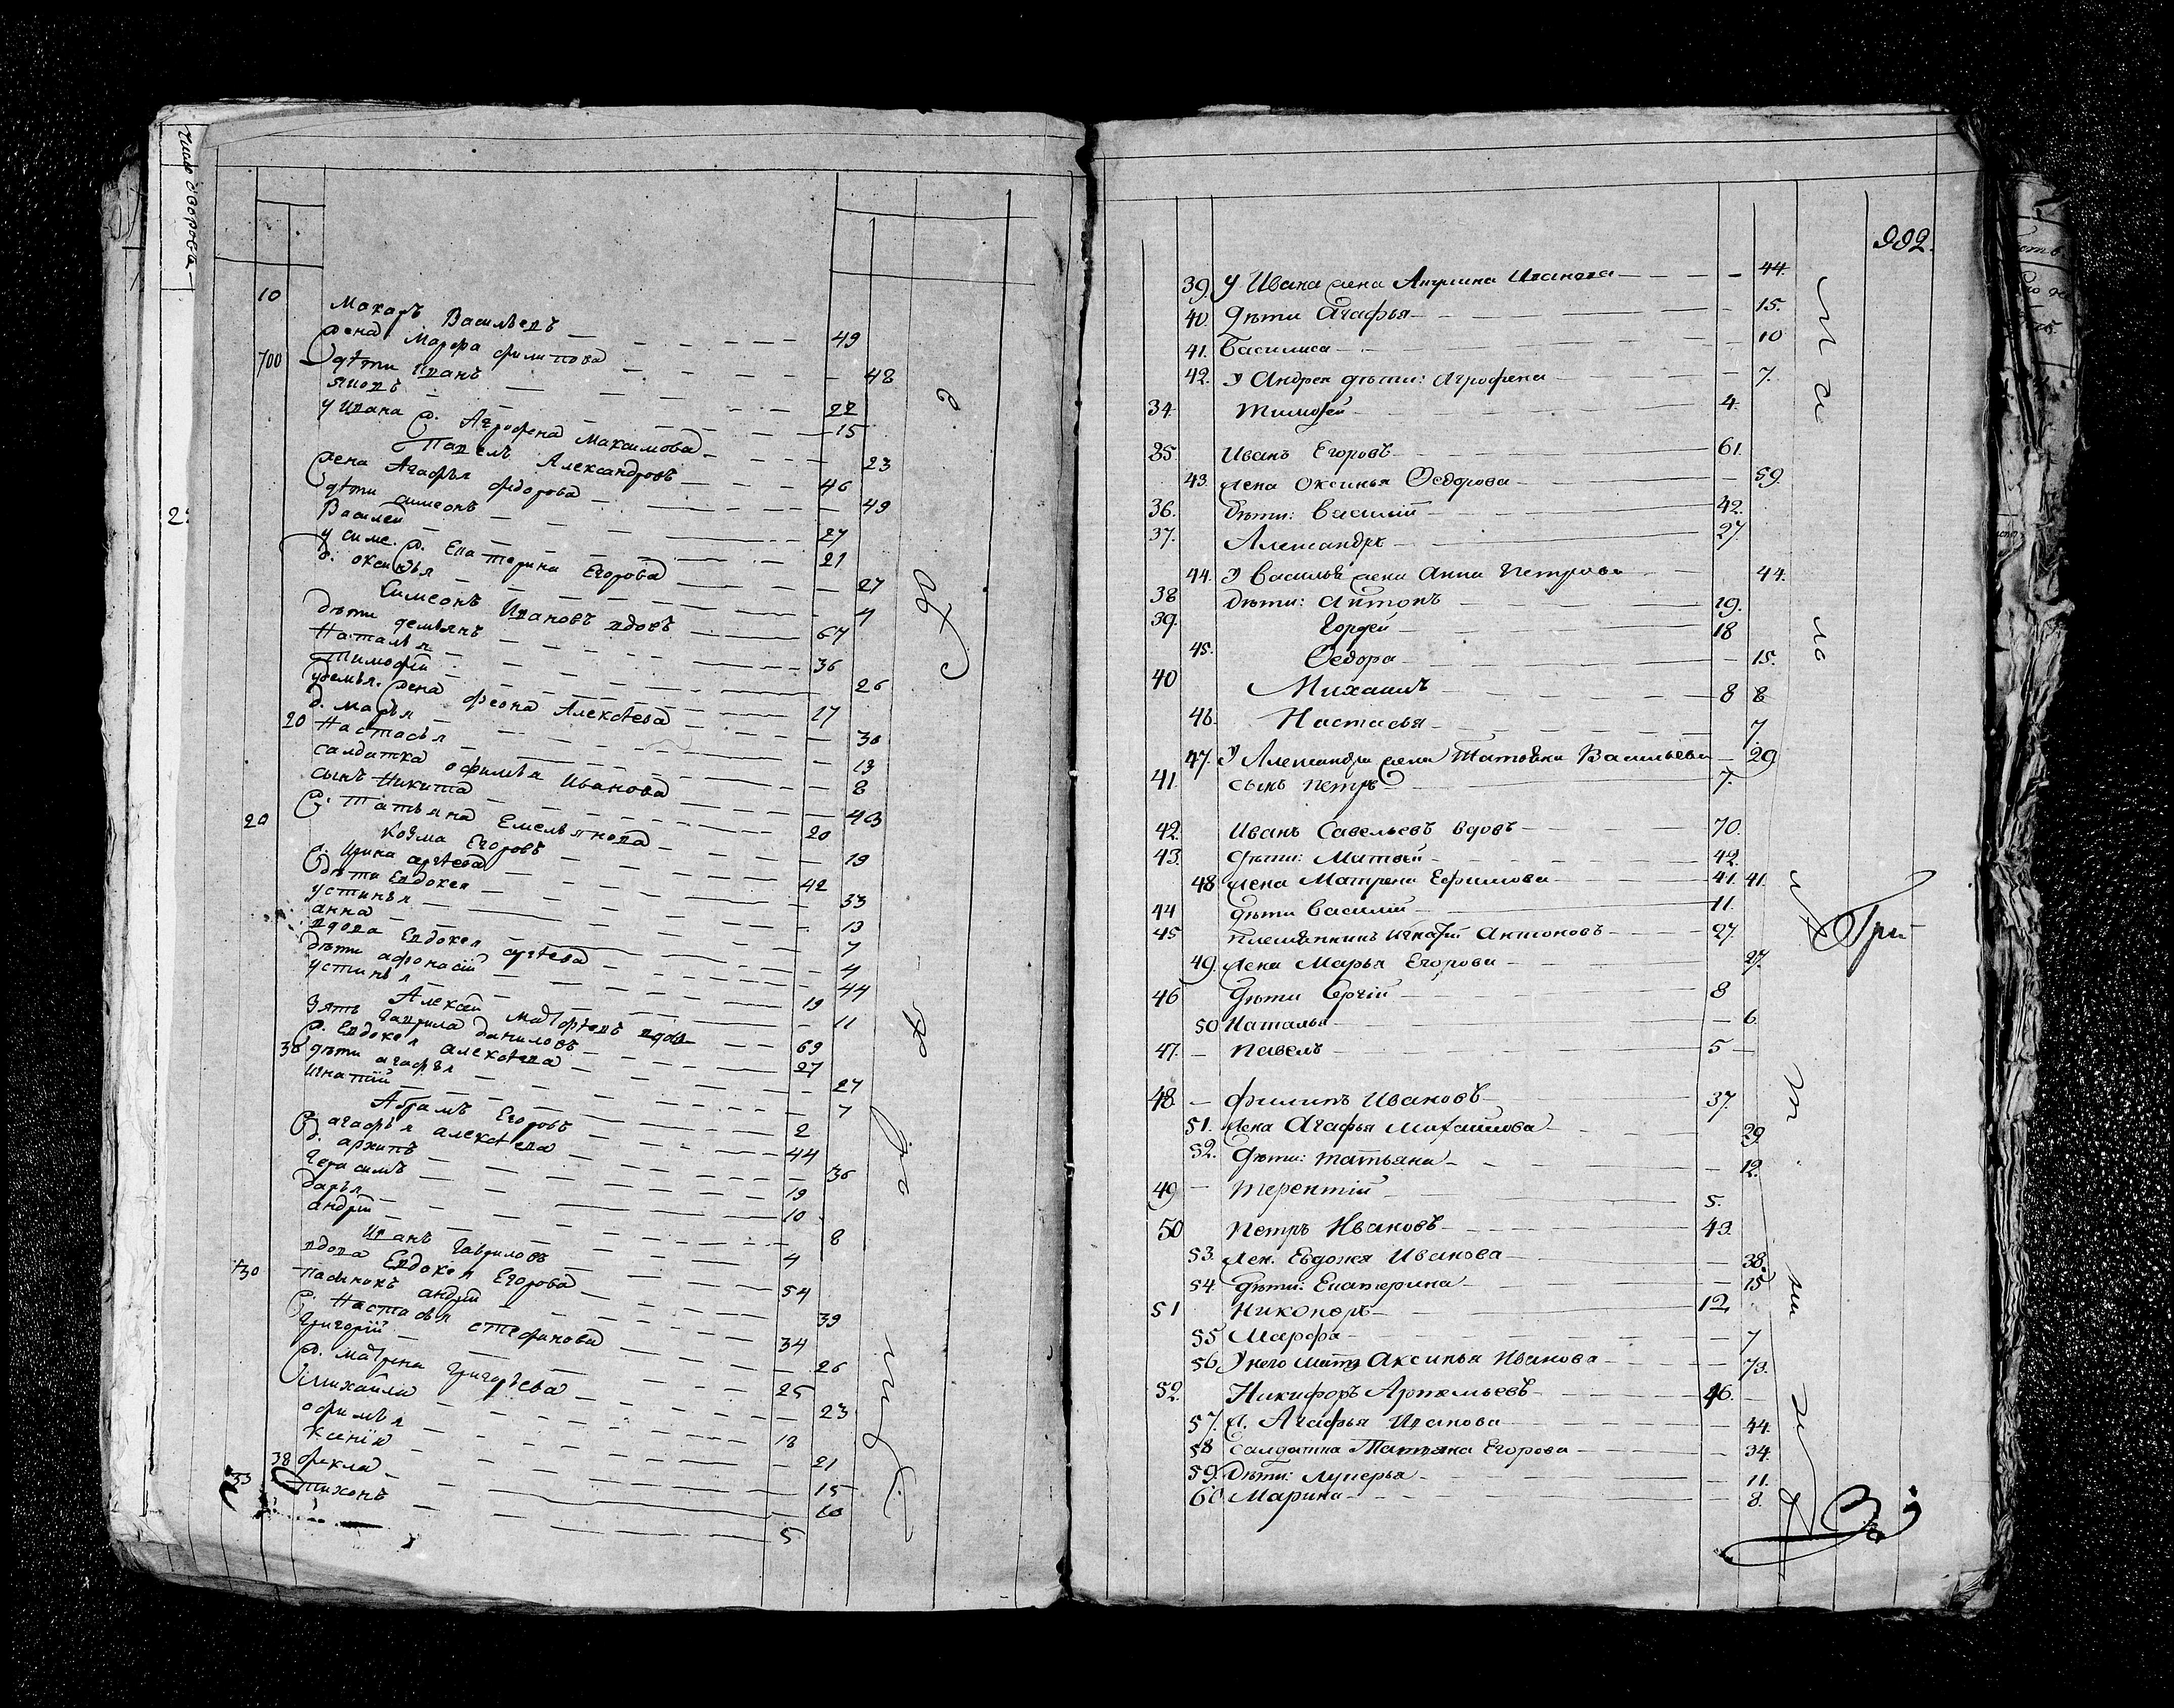 Число дворовъ
10
Макаръ Васильевъ 49
жена Марфа филипова 48
700 дѣти Иванъ 22
Яковъ 15
У Ивана ж. Агрофена Максимова 23
Павелъ Александровъ 46
жена Агафья федорова 49
дѣти симеонъ 27
Василей 21
у симе. ж. Екатерина Егорова 27
д. оксинья 4
Симеонъ Ивановъ вдовъ 67
дѣти демьянъ 36
Наталья 26
Тимофей 17
у демья. жена феона Алексѣева 30
д. Марья 13
20 Настасья 8
салдатка офимья Иванова 43
сынъ Никита 20
20 ж. Татьяна Емельянова 19
Козма Егоровъ 42
ж. Ирина сргѣева 33
дѣти Евдокея 13
устинья 7
анна 4
вдова Евдокея сргѣева 44
дѣти афонасій 19
устинья 11
Алексѣй Матфѣевъ вдов 69
зять Гаврила даниловъ 27
ж. Евдокея алексѣева 27
30 дѣти агафья 7
Игнатій 2
Абрамъ Егоровъ 44
ж. агафья алексѣева 36
д. архипъ 19
Герасимъ 10
дарья 8
андрей 4
Иванъ Гавриловъ 54
вдова Евдокея Егорова 39
730 пасынокъ андрей 34
ж. Настасья стефанова 26
Григорій 25
ж. Матрена Григорьева 23
Михайла 18
офимья 21
Ксенія 15
38 фекла 10
33 тихонъ 5
992.
39. У Ивана жена Акулина Иванова 44.
40. Дѣти Агафья 15.
41. Василиса 10
42. У Андрея дѣти: Агрофена 7.
34. Тимофей 4.
35. Иванъ Егоровъ 61.
43. жена Оксинья Федорова 59.
36. Дѣти: Василій 42.
37. Александръ 27.
44. У Василья жена Анна Петрова 44.
38 Дѣти: Антонъ 19.
39. Гордей 18
45. Федора 15.
40 Михаилъ 8 8
46. Настасья 7.
47. У Александра жена Татьяна Васильева 29
41. сынъ Петръ 7.
42. Иванъ Савельевъ вдовъ 70.
43. Дѣти: Матвей 42.
48 жена Матрена Ефимова 41. 41.
44 дѣти Василій 11.
45 племянникъ Игнатій Антоновъ 27.
49. жена Марья Егорова 27.
46 Дѣти Сергій 8
50 Наталья 6.
47. Павелъ 5
48 Филипъ Ивановъ 37.
51. жена Агафья Михайлова 29
52. Дѣти: татьяна 12.
49 Терентій 5.
50 Петръ Ивановъ 43.
53. жен. Евдокея Иванова 38.
54. дѣти: Екатерина 15
51 Никоноръ 12.
55 Марфа 7
56. У него мать Аксинья Иванова 73.
52. Никифоръ Артемьевъ 46.
57. ж. Агафья Иванова 44.
58 Салдатка Татьяна Егорова 34.
59. Дѣти: Лукерья 11.
60. Марина 8.
Гри